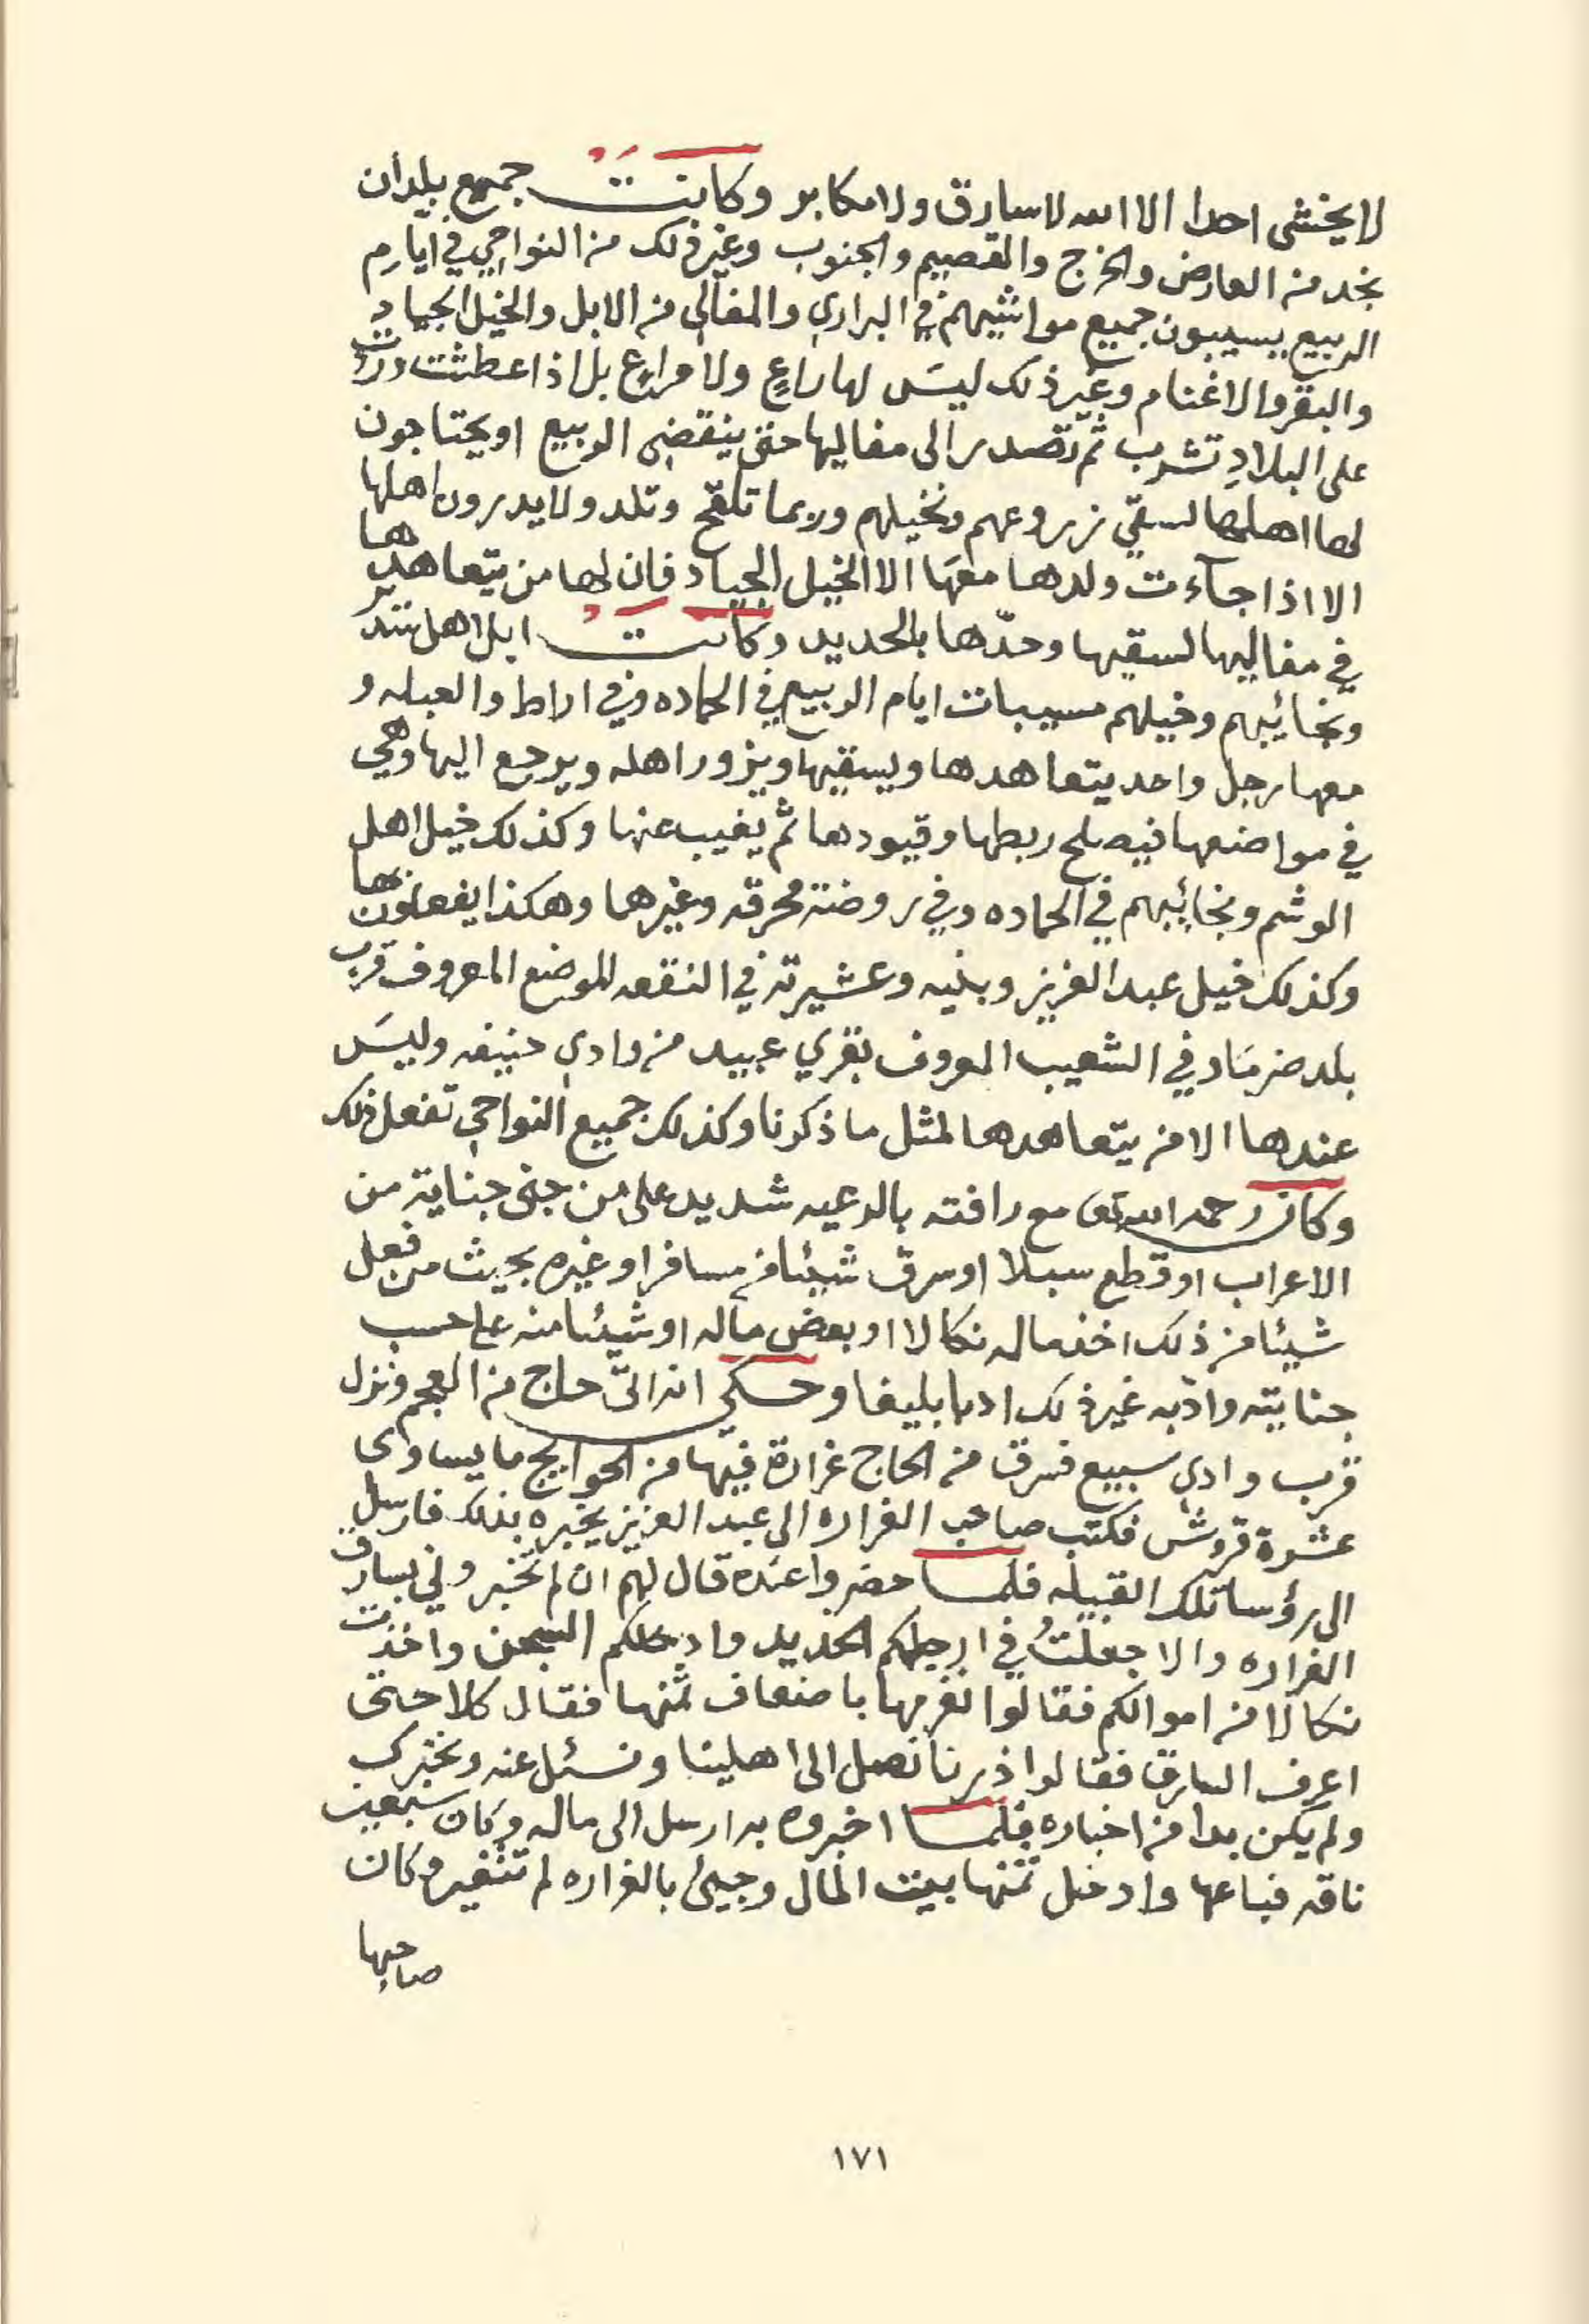 لا يخشى احدا الا الله لا سارق ولا مكابر وكانت جميع بلدان
نجد من العارض والخرج والقصيم والجنوب وغير ذلك من النواحي في ايام
الربيع يسيبون جميع مواشيهم في البراري والمفالي من الابل والخيل الجياد
والبقر والاغنام وغير ذلك ليسَ لها راعٍ ولا مراعٍ بل اذا عطشت وردت
على البلادِ تشرب ثم تصدر الى مفاليها حتى ينقضي الربيع او يحتاجون
لها اهلها لسقي زروعهم ونخيلهم وربما تلقح وتلد ولا يدرون اهلها
الا اذا جآءت ولدها معهَا الا الخيل الجياد فان لها من يتعاهدها
في مفاليها لسقيها وحدّها بالحديد وكانت ابل اهل سدير
ونجائبهم وخيلهم مسيبات ايام الربيع في الحماده وفي اراط والعبله و
معها رجل واحد يتعاهدها ويسقيها ويزور اهله ويرجع اليها وهي
في مواضعها فيصلح ربطها وقيودها ثم يغيب عنها وكذلك خيل اهل
الوشم ونجائبهم في الحماده وفي روضة محرقه وغيرهما وهكذا يفعلون بها
وكذلك خيل عبد العزيز وبنيه وعشيرته في النقعه الموضع المعروف قرب
بلد ضرمَا وفي الشعيب المعروف بقري عبيد من وادي حنيفه وليسَ
عندها الا من يتعاهدها لمثل ما ذكرنا وكذلك جميع النواحي تفعل ذلك
وكان رحمه الله تعالى مع رافته بالرعيه شديد على من جنى جناية من
الاعراب او قطع سبلا او سرق شيئا من مسافر او غيره بحيث من فعل
شيئا من ذلك اخذ ماله نكالا او بعض ماله او شيئا منه على حسب
جنايته وادّبه غير ذلك ادبا بليغا وحكي انه اتى حاج من العجم ونزل
قرب وادي سبيع فسرق من الحاج غرارة فيها من الحوايج ما يساوى
عشرة قروش فكتب صاحب الغراره الى عبد العزيز يخبره بذلك فارسل
الى رؤسا تلك القبيله فلما حضروا عنده قال لهم ان لم تخبروني بسارق
الغراره والا جعلتُ في ارجلكم الحديد وادخلكم السجن واخذت
نكالا من اموالكم فقالوا نغرمها باضعاف ثمنها فقال كلا حتى
اعرف السارق فقالوا ذرنا نصل الى اهلينا ونسئل عنه ونخبرك
ولم يكن بدا من اخباره فلما اخبروه به ارسل الى ماله وكان سبعين
ناقه فباعها وادخل ثمنها بيت المال وجيئ بالغراره لم تتغير وكان
صاحبها
١٧١